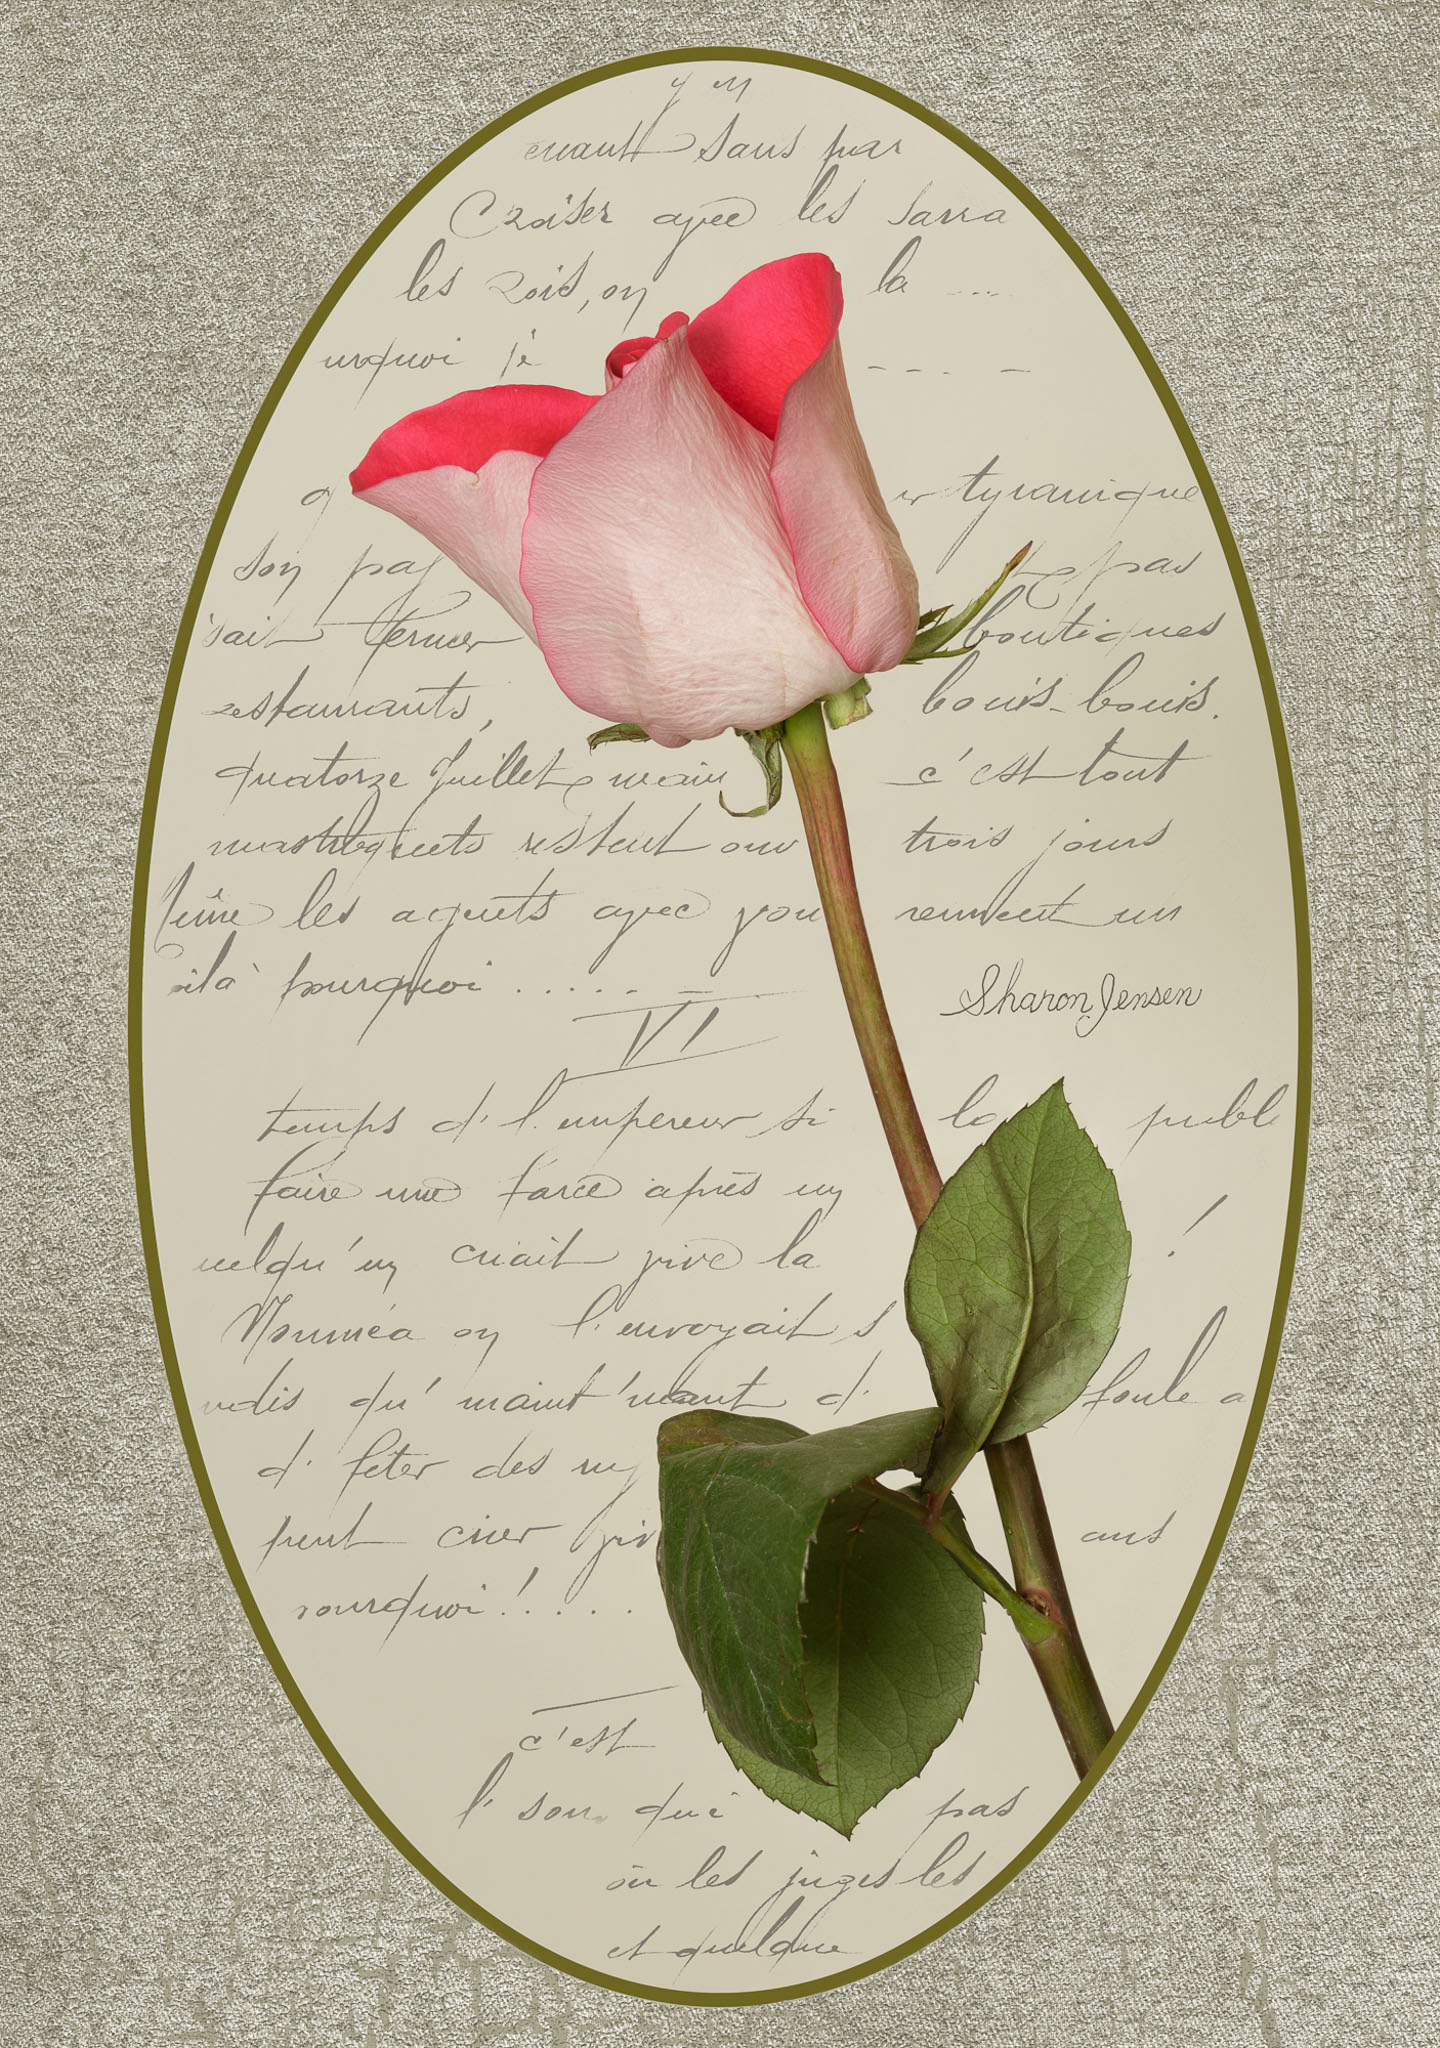 y en
enant sans par
Croiser avec les sarra
les rois, on la ....
urquoi je - - - -
q r tyrannique
son pa t pas
sait fermer boutiques
restaurants, bouis-bouis.
quatorze Juillet main c'est tout
mastroquets restent ouv trois jours
Même les agents avec vou rennent un
oilà pourquoi .....
Sharon Jensen
VI
temps d'l'empereur si la publ
faire une farce après un
uelqu'un criait vive la !
Nouméa on l'envoyait s
ndis qu'maint'nant d' foule a
d'fêter des
peut crier viv ans
pourquoi !.....
c'est
l'son qui pas
où les juges les
et quelque